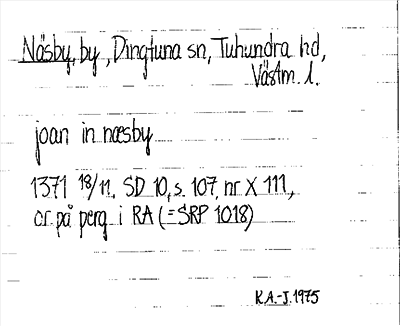 Näsby, by, Dingtuna sn, Tuhundra hd,
Västm. l.
joan in næsby
1371 18/11, SD 10, s. 107, nr X 111,
or på perg i RA (= SRP 1018)
K.A.-J. 1975